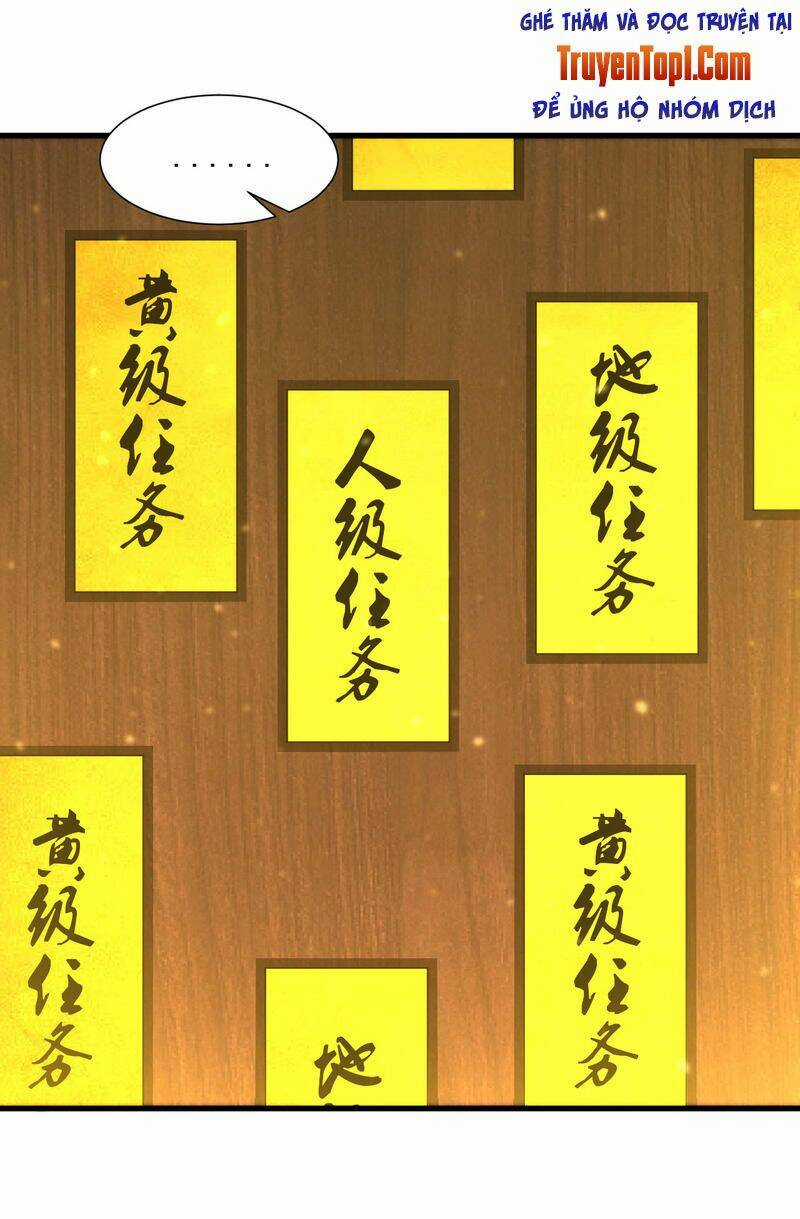 GHÉ THĂM VÀ ĐỌC TRUYỆN TẠI
TruyenTop1.Com
ĐỂ ỦNG HỘ NHÓM DỊCH
......
黄级任务
地级任务
人级任务
黄级任务
黄级任务
地